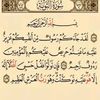 سورة التوبة
بِسْمِ اللَّهِ الرَّحْمَٰنِ الرَّحِيمِ
لَقَدْ جَاءَكُمْ رَسُولٌ مِّنْ أَنفُسِكُمْ عَزِيزٌ
عَلَيْهِ مَا عَنِتُّمْ حَرِيصٌ عَلَيْكُم بِالْمُؤْمِنِينَ
رَءُوفٌ رَّحِيمٌ فَإِن تَوَلَّوْا فَقُلْ حَسْبِيَ اللَّهُ لَا
إِلَٰهَ إِلَّا هُوَ عَلَيْهِ تَوَكَّلْتُ وَهُوَ رَبُّ الْعَرْشِ الْعَظِيمِ